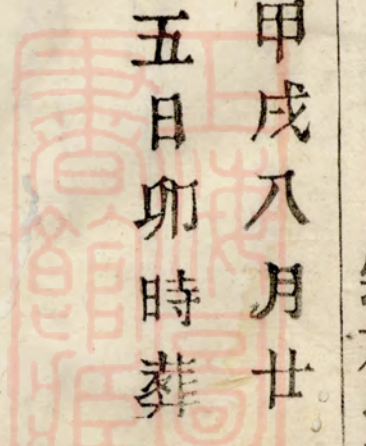 甲戌八月廿
五日卯時葬